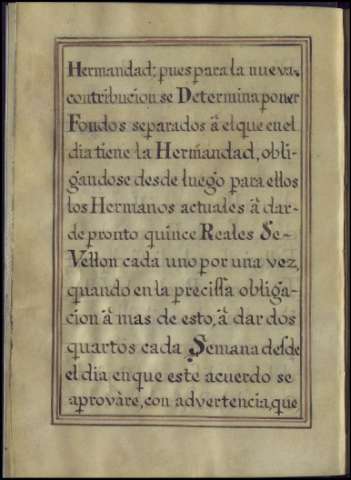 Hermandad; pues para la nueva
contribucion se Determina poner
Fondos separados â el que en el
dia tiene la Hermandad, obli-
gandose desde luego para ellos
los Hermanos actuales â dar-
de pronto quince Reales Se-
Vellon cada uno por una vez,
quando en la precissa obliga-
cion â mas de esto, â dar dos
quartos cada Semana desde
el dia en que este acuerdo se
aprovàre, con advertencia, que